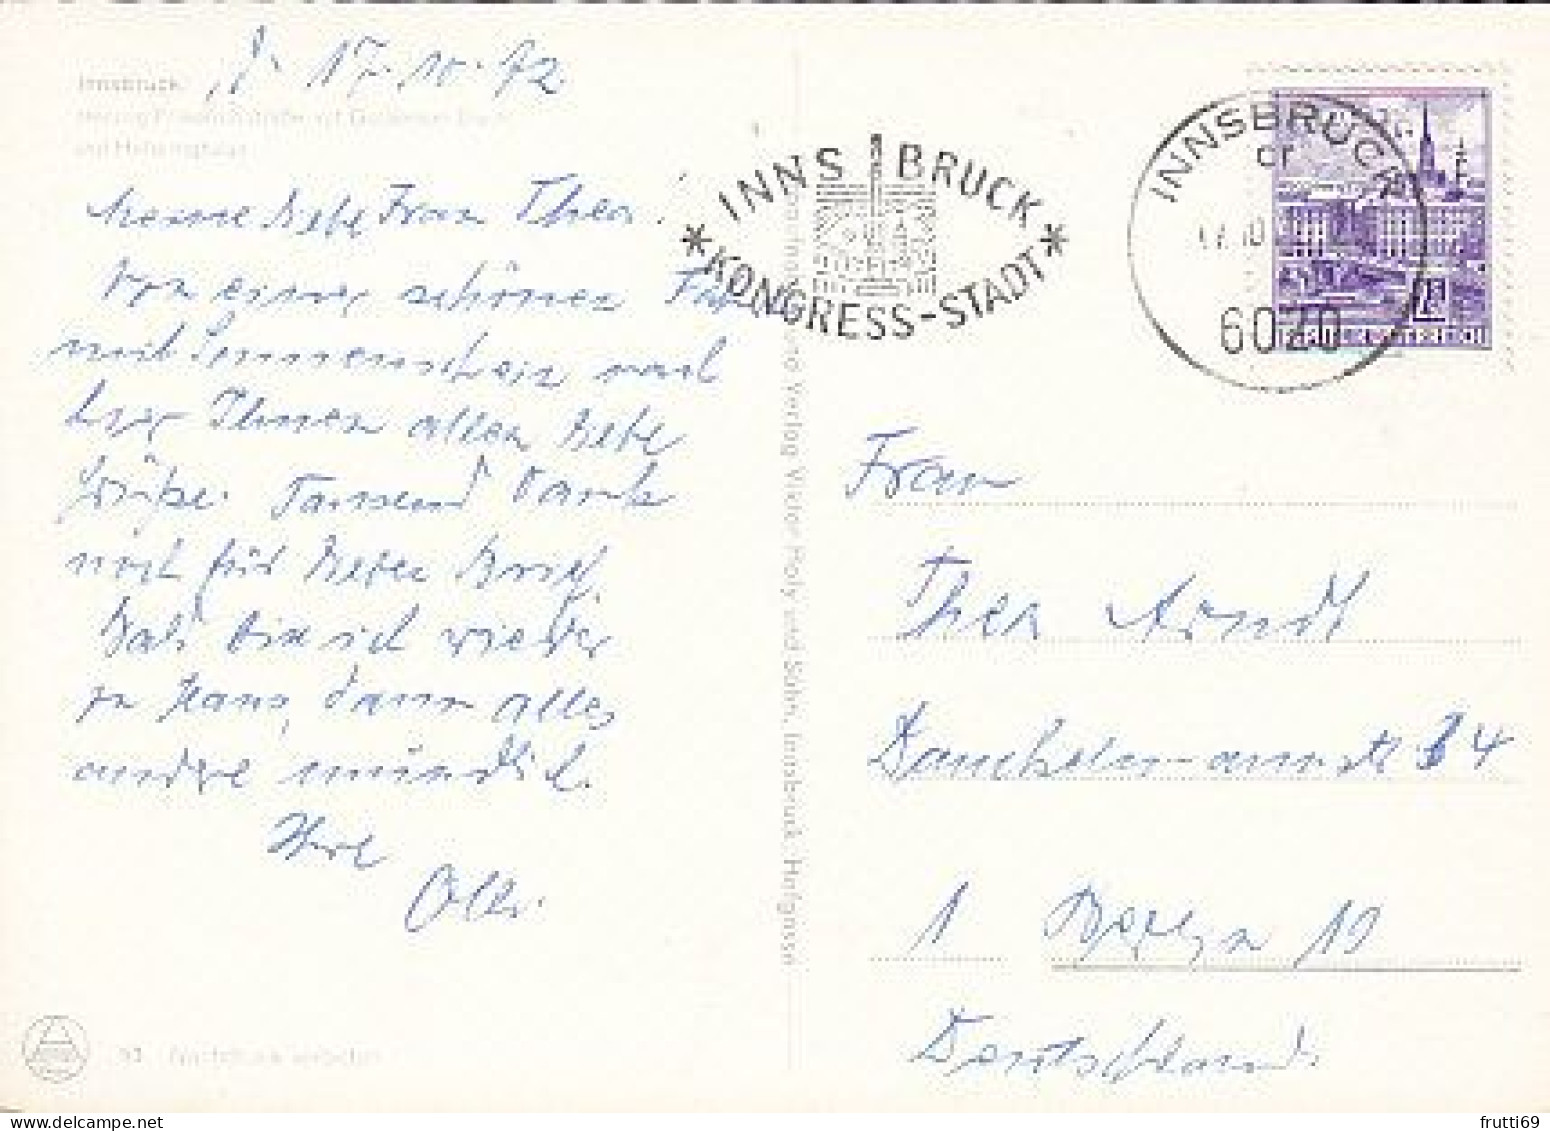 J. 17.10.72
Innsbruck
Herzog Friedrich Straße mit Goldenem Dachl
und Helblinghaus
Meine liebe Frau Thea!
Von einer schönen
mit Sonnenschein
Ihnen allen liebe
Grüße. Tausend Dank
noch für lieben Brief.
Bald bin ich wieder
zu Haus, dann alles
andre mündlich.
Ihre
INNSBRUCK
*KONGRESS-STADT*
INNSBRUCK
17.10
6020
REPUBLIK ÖSTERREICH
Frau
Thea Arndt
4
1 Berlin 19
Deutschland
Verlag Viktor Poly und Sohn, Innsbruck, Hofgasse
Nachdruck verboten
frutti69